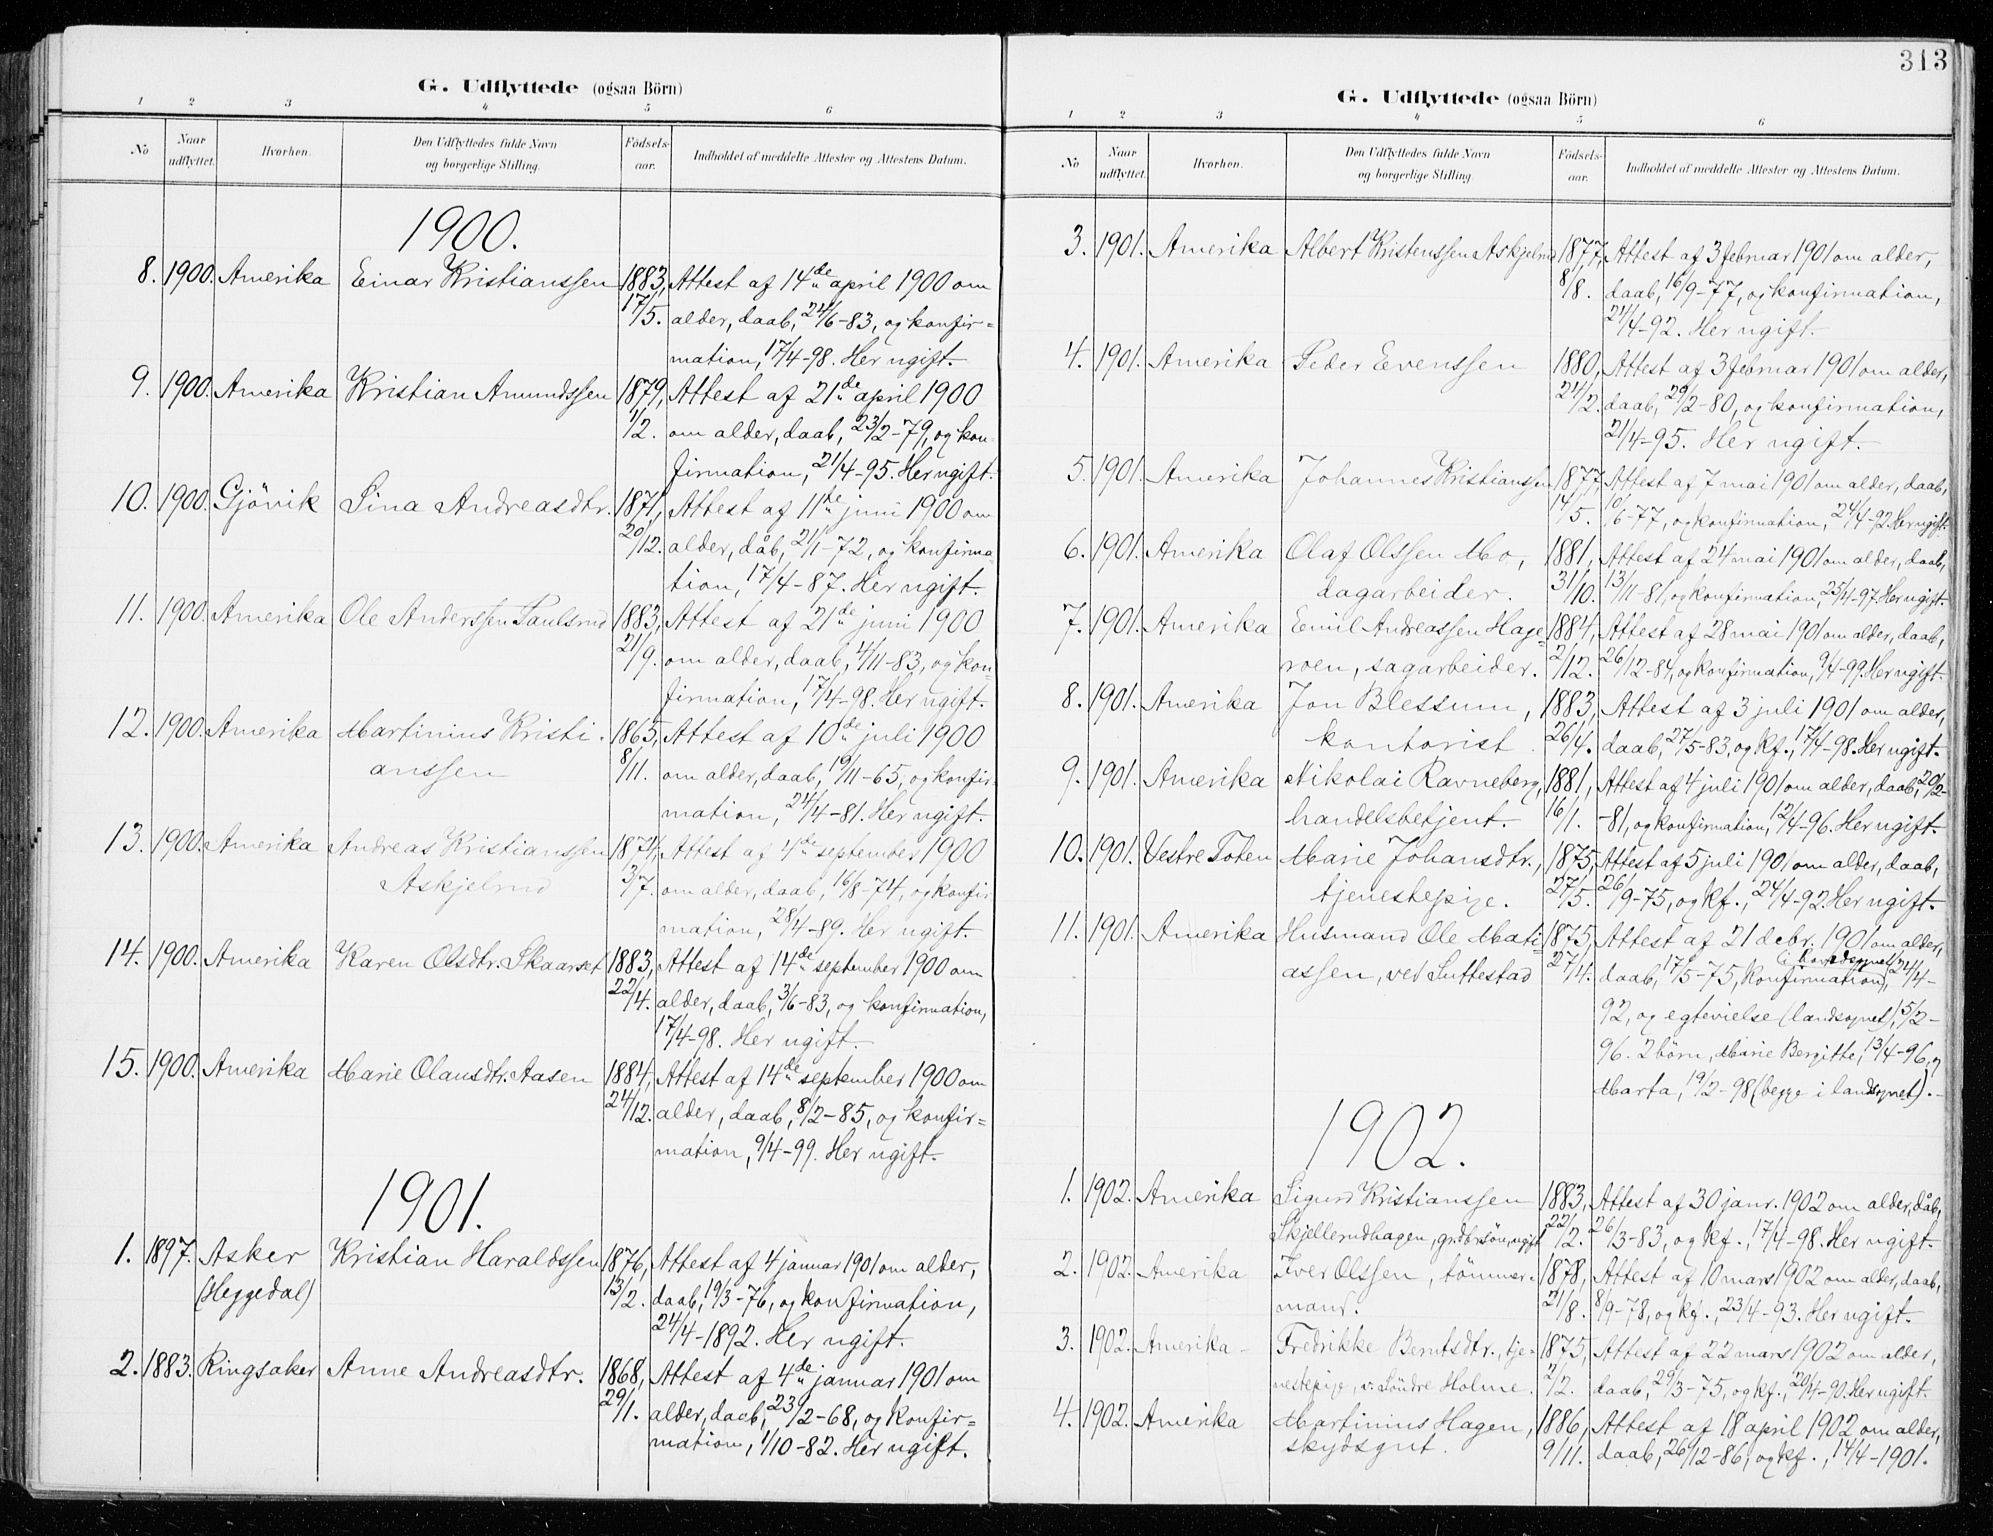 G. Udflyttede (ogsaa Börn)
1 2 3 4 5 6
No Naar udflyttet. Hvorhen. Den Udflyttedes fulde Navn og borgerlige Stilling. Födsels-aar. Indholdet af meddelte Attester og Attestens Datum.
1900.
8. 1900. Amerika Einar Kristianssen 1883, Attest af 14de april 1900 om
17/5. alder, daab, 24/6-83, og konfir=
mation, 17/4-98. Her ugift.
9. 1900. Amerika Kristian Amundssen 1879, Attest af 21de april 1900
1/2. om alder, daab, 23/2-79, og kon-
firmation, 21/4-95. Her ugift.
10. 1900. Gjövik Lina Andreasdtr. 1871, Attest af 11te juni 1900 om
20/12. alder, dåb, 21/1-72, og konfirma-
tion, 17/4-87. Her ugift.
11. 1900. Amerika Ole Anderssen Paulsrud 1883, Attest af 21de juni 1900
21/9. om alder, daab, 4/11-83, og kon-
firmation, 17/4-98. Her ugift.
12. 1900. Amerika Martinius Kristi- 1865, Attest af 10de juli 1900
anssen 8/11. om alder, daab, 19/11-65, og konfir-
mation, 24/4-81. Her ugift.
13. 1900. Amerika Andreas Kristianssen 1874, Attest af 4de september 1900
Askjelrud 3/7. om alder, daab, 16/8-74, og konfir-
mation, 28/4-89. Her ugift.
14. 1900. Amerika Karen Olsdtr. Skaarset 1883, Attest af 14de september 1900 om
22/4. alder, daab, 3/6-83, og konfirmation,
17/4-98. Her ugift.
15. 1900. Amerika Marie Olausdtr. Aasen 1884, Attest af 14de september 1900 om
24/12. alder, daab, 8/2-85, og konfir=
mation, 9/4-99. Her ugift.
1901.
1. 1897. Asker Kristian Haraldssen 1876, Attest af 4 januar 1901 om alder,
(Heggedal) 13/2. daab, 19/3-76, og konfirmation,
24/4-1892. Her ugift.
2. 1883. Ringsaker Anne Andreasdtr. 1868, Attest af 4de januar 1901 om
29/1. alder, daab, 23/2-68, og konfir=
mation, 1/10-82. Her ugift.
313
G. Udflyttede (ogsaa Börn)
1 2 3 4 5 6
No Naar udflyttet. Hvorhen. Den Udflyttedes fulde Navn og borgerlige Stilling. Födsels-aar. Indholdet af meddelte Attester og Attestens Datum.
3. 1901. Amerika Albert Kristenssen Askjelrud 1877, Attest af 3 februar 1901 om alder,
8/8. daab, 16/9-77, og konfirmation,
24/4-92. Her ugift.
4. 1901. Amerika Peder Evenssen 1880, Attest af 3 februar 1901 om alder,
21/2. daab, 29/2-80, og konfirmation,
21/4-95. Her ugift.
5. 1901. Amerika Johannes Kristianssen 1877, Attest af 7 mai 1901 om alder, daab,
14/5. 10/6-77, og konfirmation, 24/4-92. Her ugift.
6. 1901. Amerika Olaf Olssen Mo, 1881, Attest af 24 mai 1901 om alder, daab,
dagarbeider. 31/10. 13/11-81, og konfirmation, 25/4-97. Her ugift.
7. 1901. Amerika Emil Andreassen Hage- 1884, Attest af 28 mai 1901 om alder, daab,
roen, sagarbeider. 2/12. 26/12-84, og konfirmation, 9/4-99. Her ugift.
8. 1901. Amerika Jon Blessum, 1883, Attest af 3 juli 1901 om alder,
kontorist. 26/4. daab, 27/5-83, og kf., 17/4-98. Her ugift.
9. 1901. Amerika Nikolai Ravneberg, 1881, Attest af 4 juli 1901 om alder, daab, 20/2-
handelsbetjent. 16/1. -81, og konfirmation, 12/4-96. Her ugift.
10. 1901. Vestre Toten Marie Johansdtr., 1875, Attest af 5 juli 1901 om alder, daab,
tjenestepige. 27/5. 26/9-75, og kf., 24/4-92. Her ugift.
11. 1901. Amerika Husmand Ole Mati- 1875, Attest af 21 debr. 1901 om alder,
assen, ved Suttestad 27/4. daab, 17/5-75, konfirmation, (i hovedsognet), 24/4-
92, og egtevielse (landsognet), 15/2-
96. 2 börn, Marie Bergitte, 13/4-96, og
Marta, 19/2-98 (begge i landsognet).
1902.
1. 1902. Amerika Sigurd Kristianssen 1883, Attest af 30 janr. 1902 om alder, dåb,
Skjellerudhagen, grdbrsön, ugift 22/2. 26/3-83, og kf., 17/4-98. Her ugift.
2. 1902. Amerika Iver Olssen, tömmer- 1878, Attest af 10 mars 1902 om alder, daab,
mand. 21/8. 8/9-78, og kf., 23/4-93. Her ugift.
3. 1902. Amerika Fredrikke Berntsdtr., tje- 1875, Attest af 22 mars 1902 om alder,
nestepige, v. Söndre Holme. 2/2. daab, 29/3-75, og kf., 20/4-90. Her ugift.
4. 1902. Amerika Martinius Hagen, 1886, Attest af 18 april 1902 om alder,
skydsgut. 9/11. daab, 26/12-86, og kf., 14/4-1901.